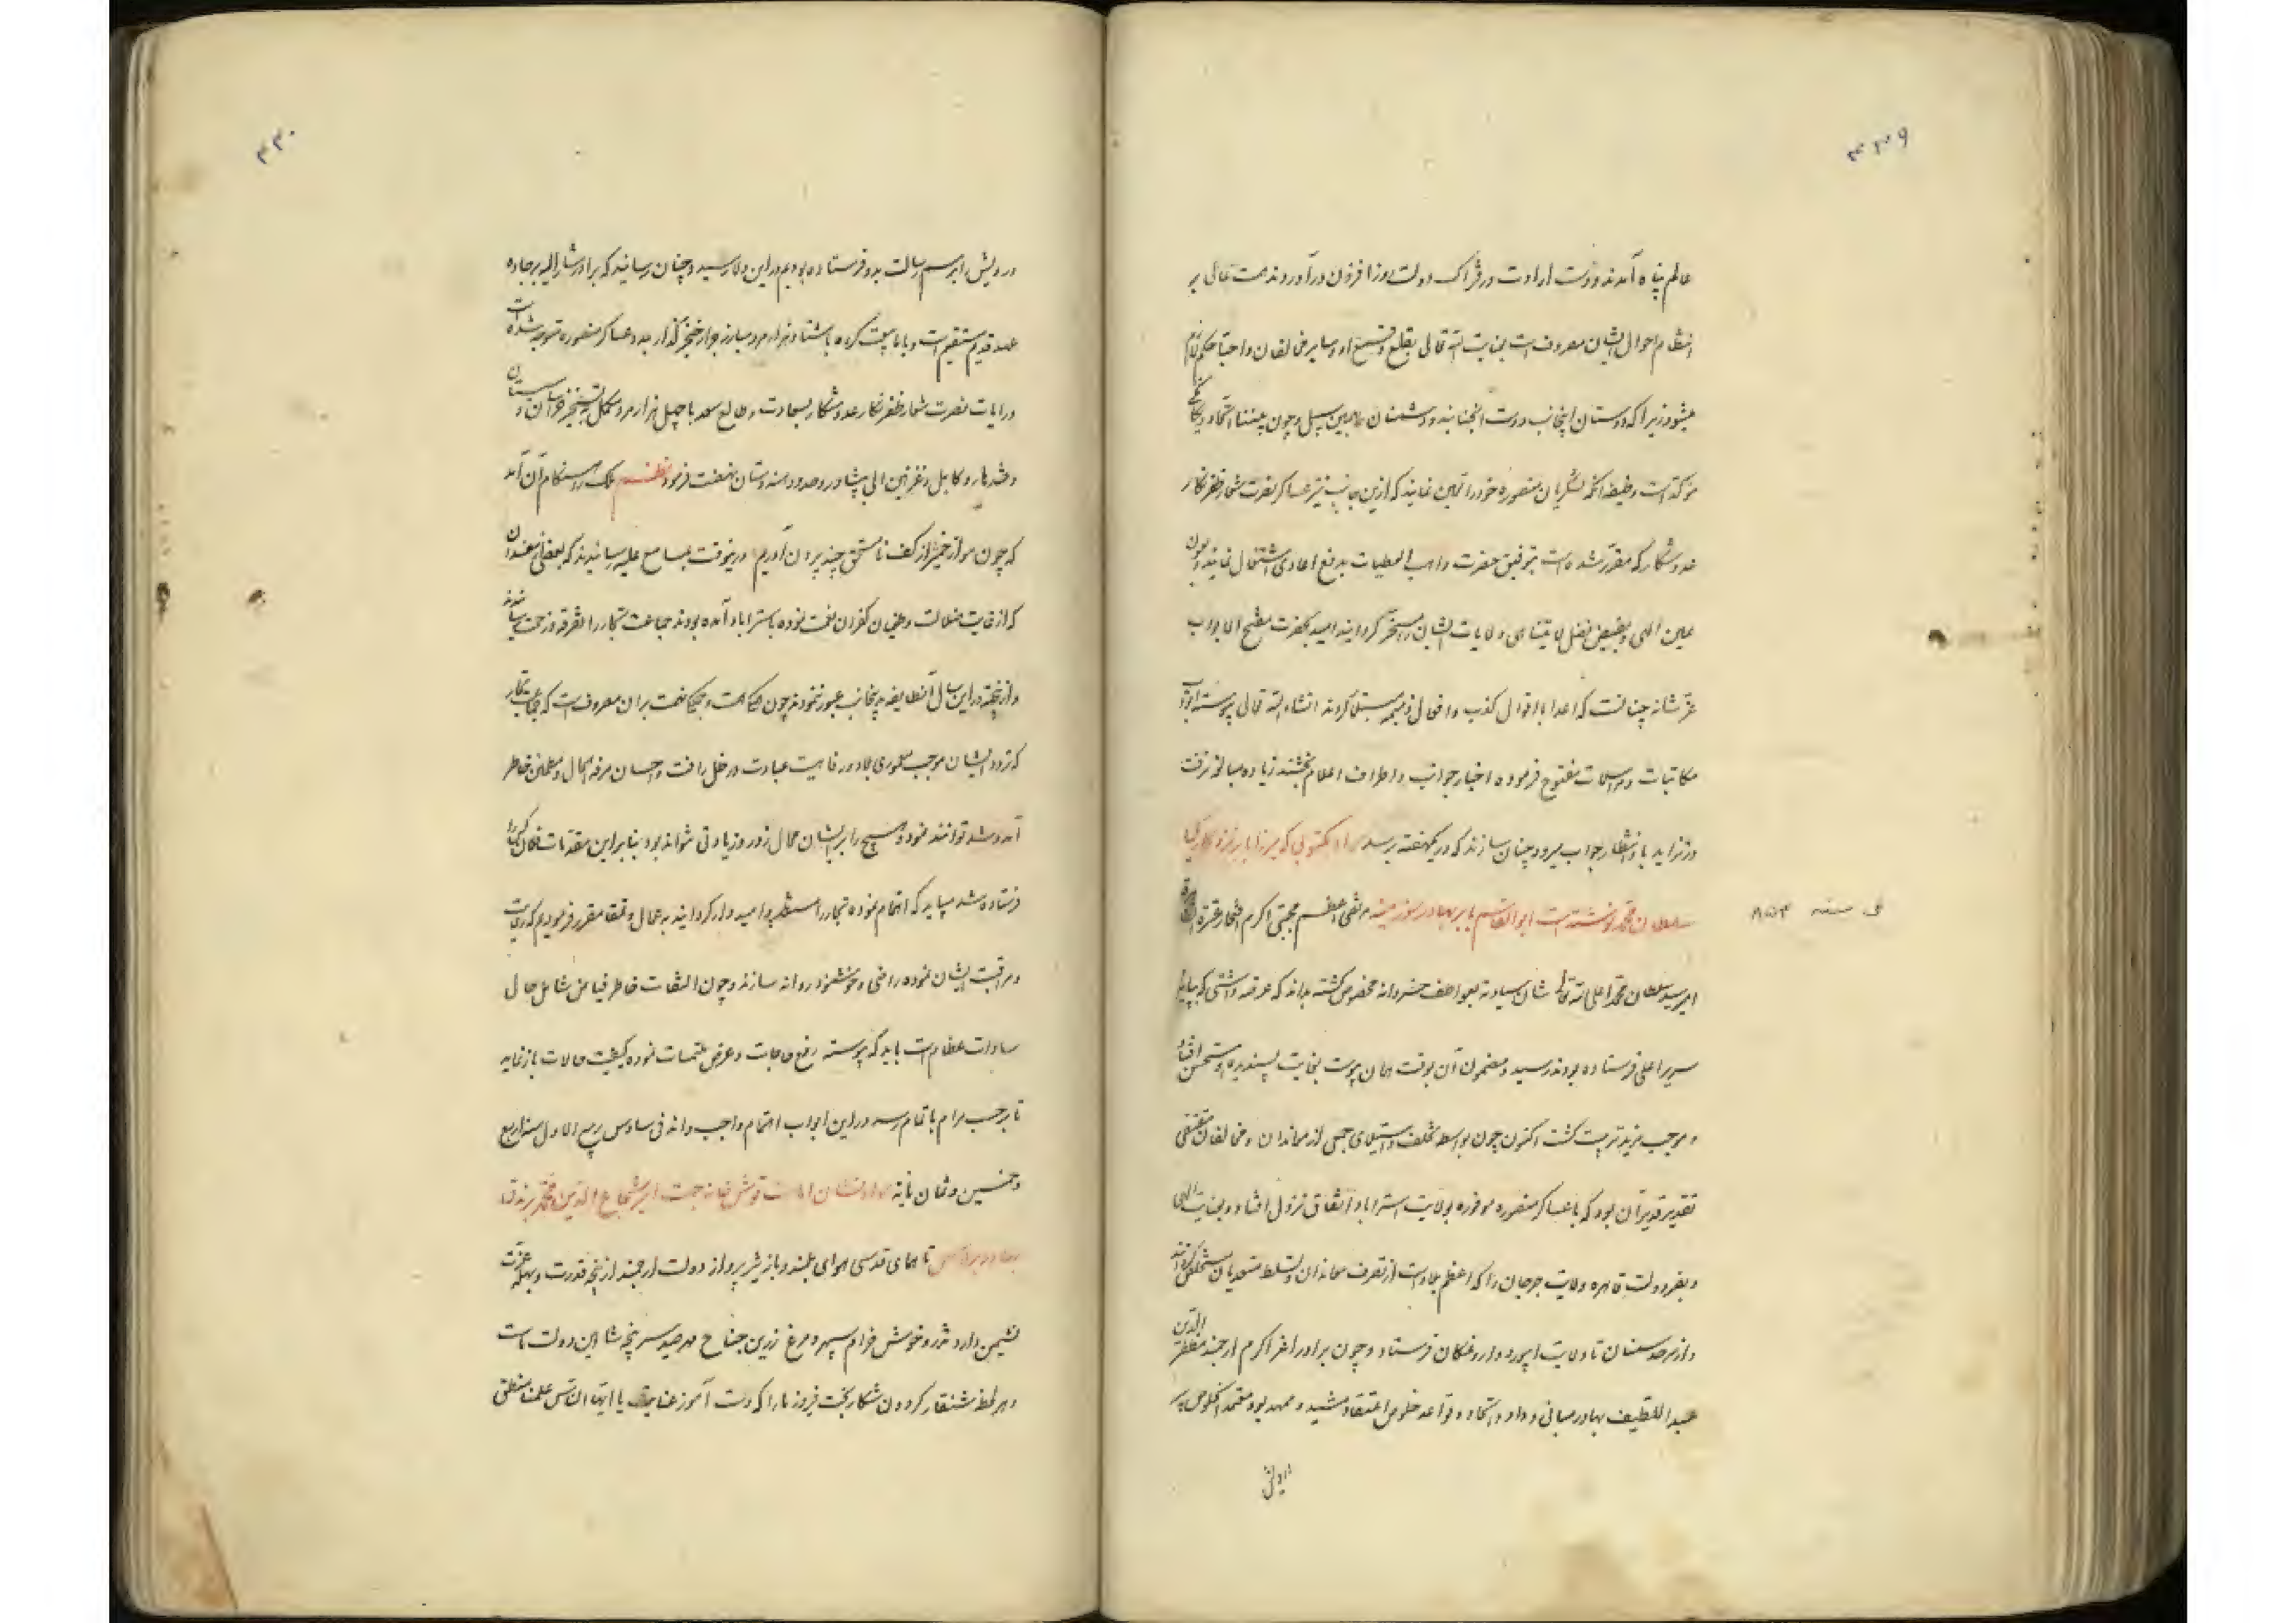 ۴۳۹
عالم پناه آمدند و دست ارادت در فتراک دولت روز افزون درآوردند همت عالی بر
انتظام احوال ایشان مصروف است بعنایت الله تعالی بقلع و قمع او و سایر مخالفان واجبا حکم
میشود زیرا که دوستان اینجانب دوست آنجنابند و دشمنان همین سبیل و چون بیننا اتحاد و یگانگی
مؤکد است وظیفه آنکه لشگریان منصوره خود را تعیین نمایند که ازین جانب نیز عساکر نصرت شعار ظفر نگار
عدو شکار که مقرر شده است بتوفیق حضرت واهب العطیات بدفع اعادی اشتغال نمایند و بعون
معین الهی و بفیض فضل لا یتناهی ولایات ایشان را مسخر گردانید امید بحضرت مفتح الابواب
عز شانه چنانست که اعدا با اقوال کذب و افعال ذمیمه مبتلا گردند انشاء الله تعالی پیوسته ابواب
مکاتبات و مراسلات مفتوح فرموده اخبار جوانب و اطراف اعلام بخشند زیاده مبالغه نرفت
و نزاید بانتظار جواب میرود چنان سازند که در یکهفته برسد سواد مکتوبی که میرزا بابر نزد کارکیا
سلطان محمد نوشته است ابوالقاسم بابر بهادر سوزمیز مرتضی اعظم مجتبی اکرم افتخار عترة الطاهره
فی سنه ۸۵۴
امیر سید سلطان محمد اعلی الله تعالی شان سیادته بعواطف خسروانه مخصوص گشته بداند که عرضه داشتی که بپایه
سریر اعلی فرستاده بودند رسید و مضمون آن بوقت همان پیوست بغایت پسندیده و مستحسن افتاد
و موجب مزید تربیت گشت اکنون چون بواسطه تخلف و استیلای جمعی از معاندان و مخالفان مقتضی
تقدیر قدیر آن بود که با عساکر منصوره موفوره بولایت استراباد اتفاق نزول افتاد و بعنایت الهی
و بفر دولت قاهره ولایت جرجان را که اعظم بلاد است از تصرف معاندان و تسلط متعدیان مستخلص گردانید
و از سرحد سمنان تا ولایت ابیورد داروغکان فرستاد و چون برادر اعز اکرم ارجمند مظفر الدین
عبد اللطیف بهادر مبانی وداد و اتحاد و قواعد خلوص اعتقاد مشید و ممهد بود معتمد الخلوص
درویش
۴۴۰
درویش را برسم رسالت بدو فرستاده بودیم در این ولا رسید و چنان رسانید که برادر مشارالیه بر جاده
عهد قدیم مستقیم است و با ما بیعت کرده با هشتاد هزار مرد مبارز جرار خنجر گذار بمدد عساکر منصوره متوجه شده است
و رایات نصرت شعار ظفر نگار عدو شکار بسعادت و طالع سعد با چهل هزار مرد مکمل به تسخیر خراسان و سیستان
و قندهار و کابل و غزنین الی پشاور و حدود هندوستان نهضت فرمود نظم ملک را هنگام آن آمد
که چون موی از خمیر از کف نا مستحق چند بیرون آوریم درینوقت بمسامع علیه رسانیدند که بعضی مفسدان
که از غایت ضلالت و طغیان کفران نعمت نموده باستراباد آمده بودند جماعت تجار را تفرقه و زحمت رسانیدند
و از آنجهته در این سال آنطایفه بدینجانب عبور ننمودند چون همگی همت و جملگی نهمت بر آن مصروف است که جماعت تجار
که تردد ایشان موجب معموری بلاد و رفاهیت عباد است در ظل رأفت و احسان مرفه الحال و مطمئن خاطر
آمد و شد توانند نمود و هیچ را بر ایشان مجال زور و زیادتی نتواند بود بنا بر این مقدمات
فرستاده شد میباید که اهتمام نموده تجار را مستظهر و امیدوار گردانید بعمال و تمغا مقرر فرمودیم که رعایت
و مراقبت ایشان نموده راضی و خوشنود روانه سازند و چون التفات خاطر فیاض شامل حال
سادات عظام است باید که پیوسته رفع حاجات و عرض ملتمسات نموده کیفیت حالات باز نماید
تا بر حسب مرام باتمام رسد در این ابواب اهتمام واجب داند فی سادس ربیع الاول سنه اربع
و خمسین و ثمان مایة سواد نشان امارت قوش خانه جهت امیر شجاع الدین محمد برندق
بهادر برلاس تا همای قدسی هوای بلند و باز تیز پرواز دولت ارجمند از پنجه قدرت و پهله عزت
نشیمن دارد تذرو خوش خرام سپهر و مرغ زرین جناح مهر صید سر پنجه شاهین دولت است
و هر لحظه شنقار گردون شکار بخت فیروز ما را که دست آموز عنایت یا ایها الناس علمنا منطق